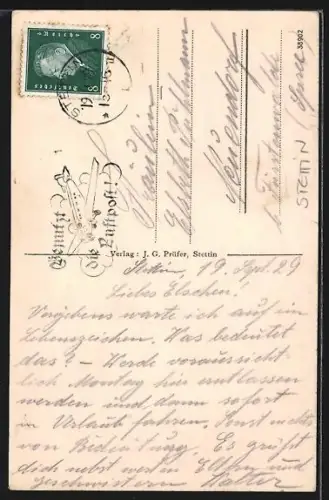 38902
8 Deutsches Reich 8
STETTIN
19
Benutzt
die Luftpost!
Fräulein
Elsbeth
Neuendorf
b. Fürstenwalde
(Spree)
STETTIN
Verlag: J. G. Prüfer, Stettin
Stettin, 19. Spt. 29
Liebes Elschen!
Vergebens warte ich auf ein
Lebenszeichen. Was bedeutet
das? – Werde voraussicht
lich Montag hier entlassen
werden und dann sofort
in Urlaub fahren. Sonst nichts
von Bedeutung. Es grüßt
dich nebst werten Eltern und
Geschwistern Walter